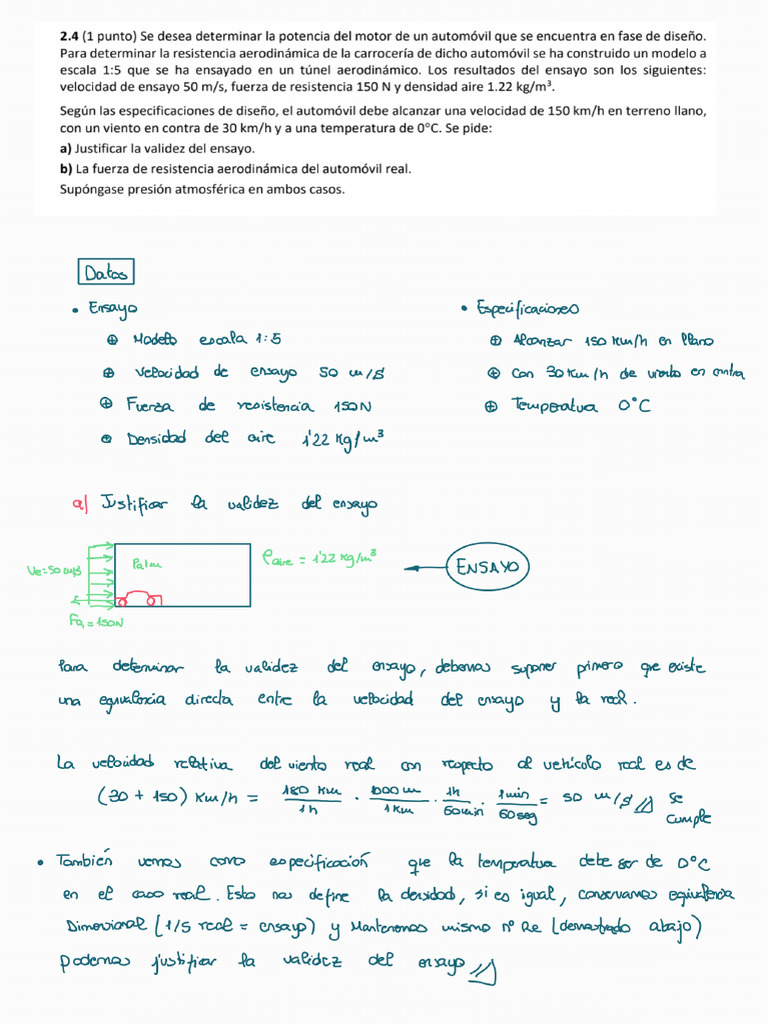 2.4 (1 punto) Se desea determinar la potencia del motor de un automóvil que se encuentra en fase de diseño.
Para determinar la resistencia aerodinámica de la carrocería de dicho automóvil se ha construido un modelo a
escala 1:5 que se ha ensayado en un túnel aerodinámico. Los resultados del ensayo son los siguientes:
velocidad de ensayo 50 m/s, fuerza de resistencia 150 N y densidad aire 1.22 kg/m³.
Según las especificaciones de diseño, el automóvil debe alcanzar una velocidad de 150 km/h en terreno llano,
con un viento en contra de 30 km/h y a una temperatura de 0°C. Se pide:
a) Justificar la validez del ensayo.
b) La fuerza de resistencia aerodinámica del automóvil real.
Supóngase presión atmosférica en ambos casos.
Datos
• Ensayo
⊕ Modelo escala 1:5
⊕ Velocidad de ensayo 50 m/s
⊕ Fuerza de resistencia 150N
⊕ Densidad del aire 1'22 Kg/m³
• Especificaciones
⊕ Alcanzar 150 Km/h en llano
⊕ Con 30 Km/h de viento en contra
⊕ Temperatura 0°C
a) Justificar la validez del ensayo
Ve=50 m/s
Patm
ρaire = 1'22 kg/m³
ENSAYO
Fa = 150N
Para determinar la validez del ensayo, debemos suponer primero que existe
una equivalencia directa entre la velocidad del ensayo y la real.
La velocidad relativa del viento real con respecto al vehículo real es de
(30 + 150) Km/h = 180 Km/1h · 1000 m/1 Km · 1h/60min · 1min/60seg = 50 m/s Se
cumple
• También vemos como especificación que la temperatura debe ser de 0°C
en el caso real. Esto nos define la densidad, si es igual, conservamos equivalencia
Dimensional (1/5 real = ensayo) y Mantenemos mismo nº Re (demostrado abajo)
podemos justificar la validez del ensayo